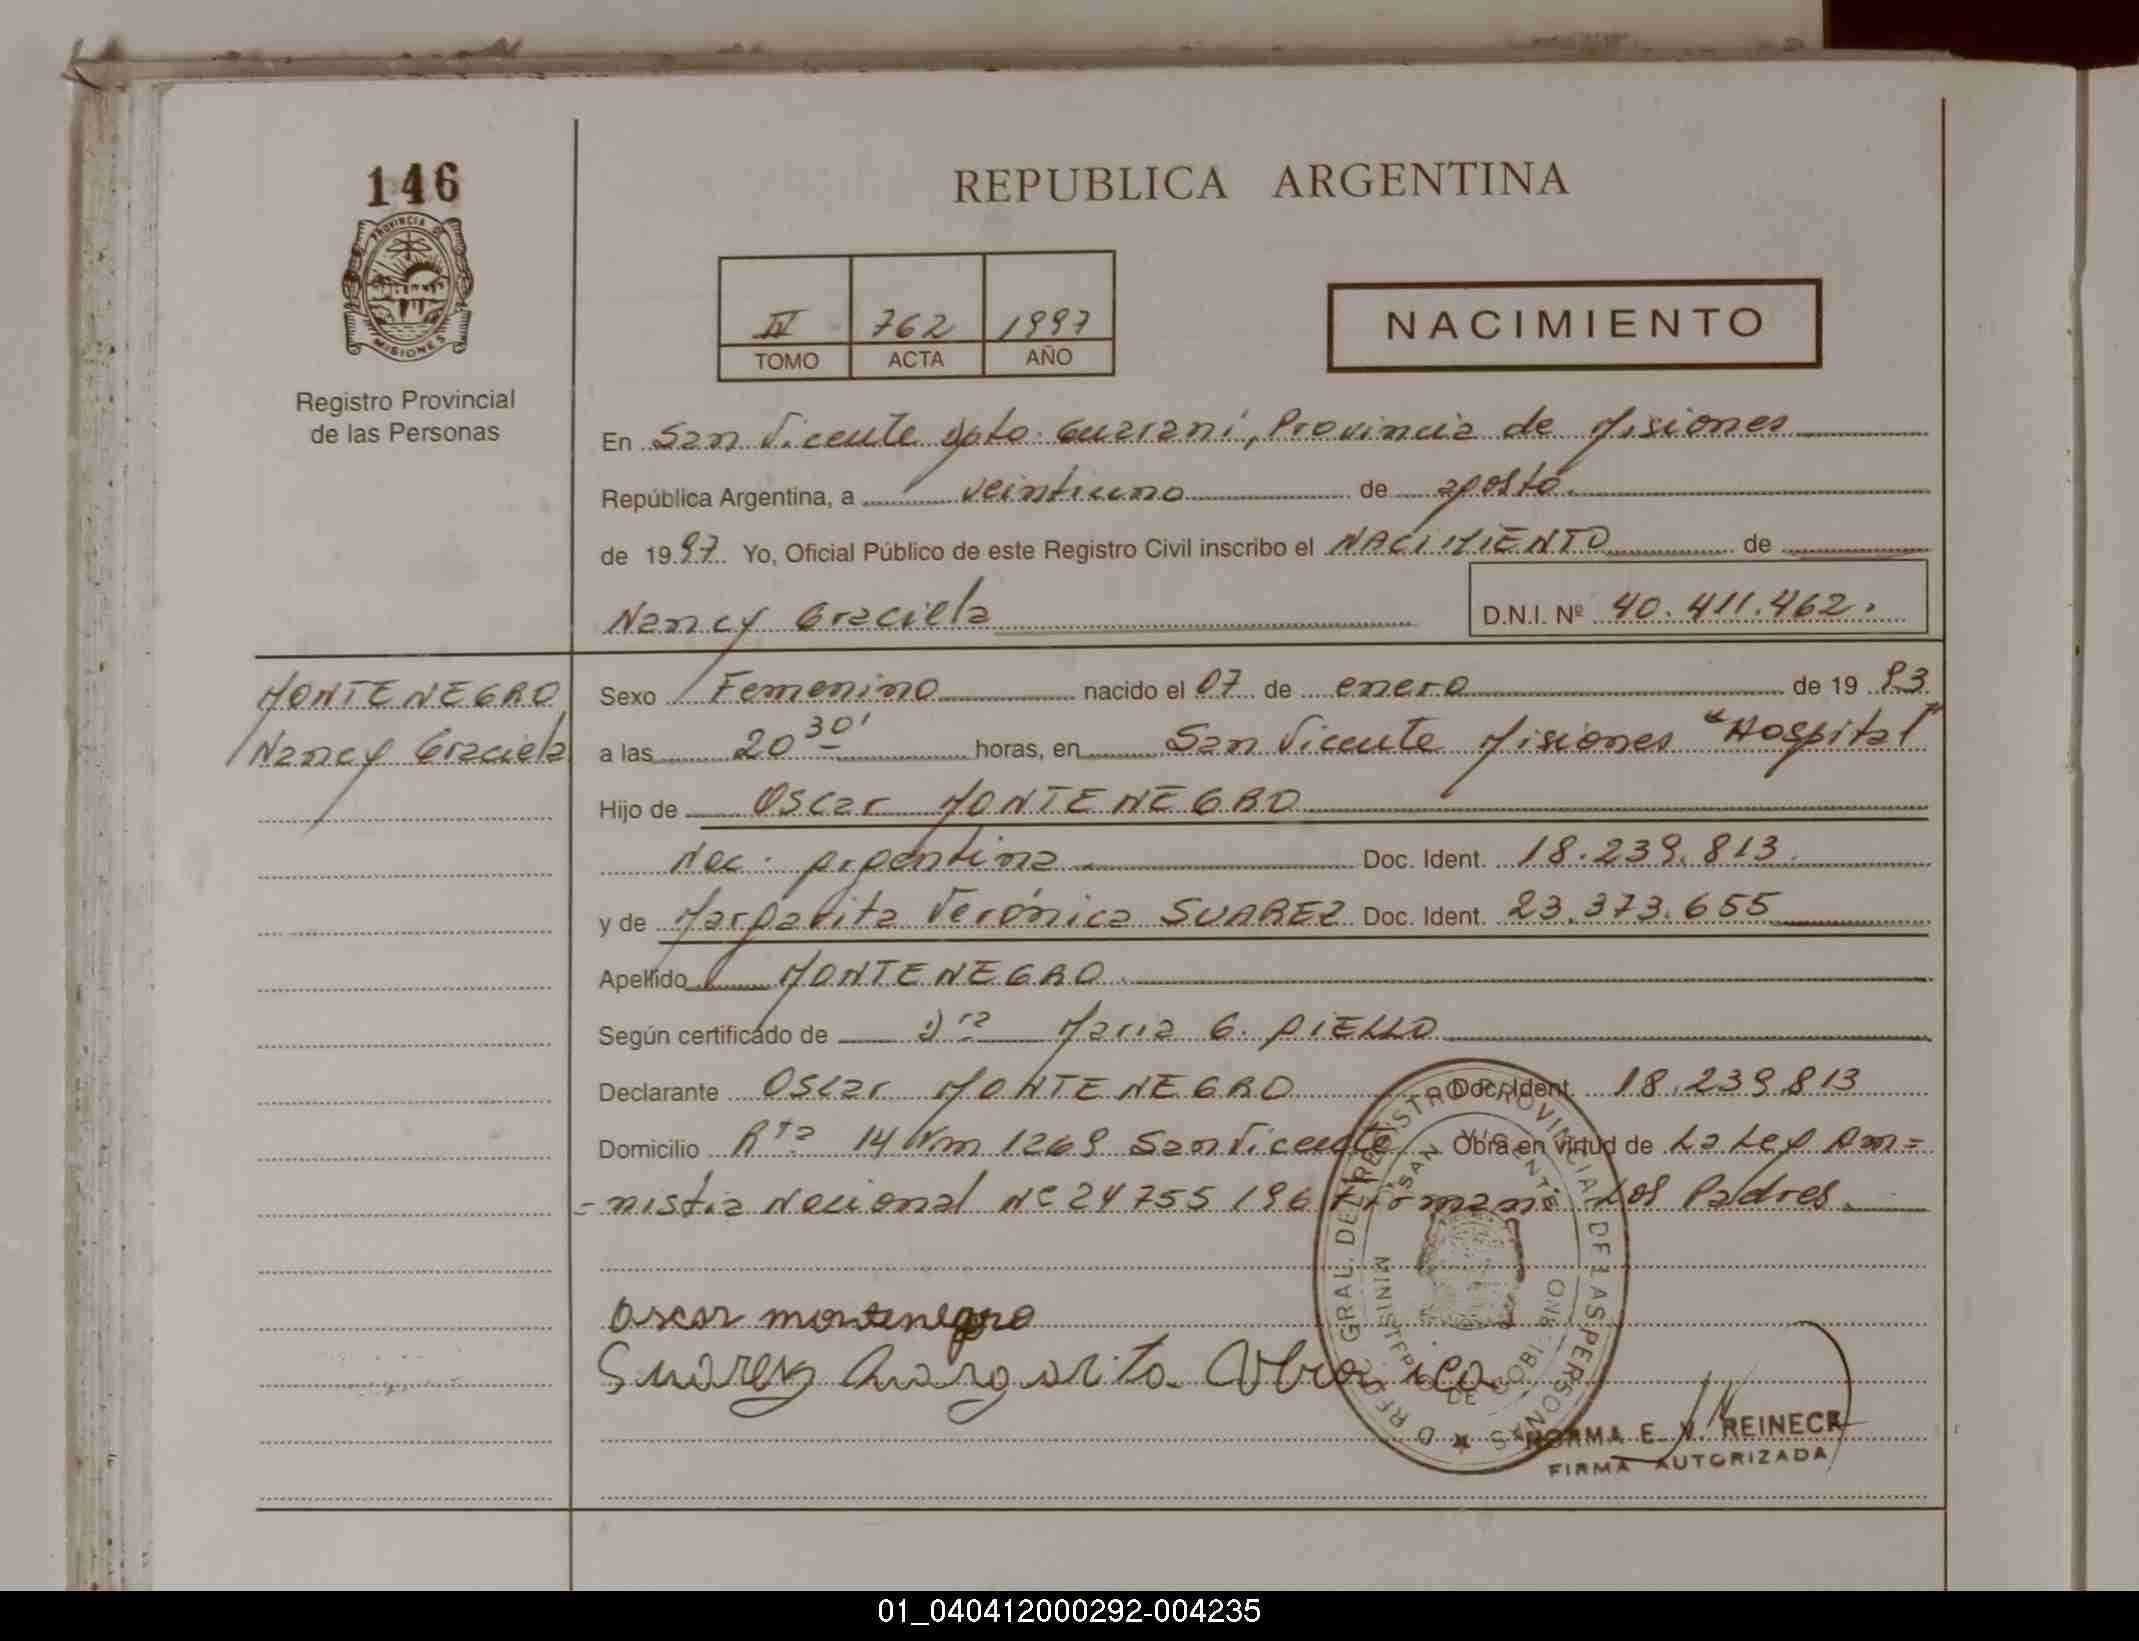 146
PROVINCIA DE
MISIONES
Registro Provincial
de las Personas
REPUBLICA ARGENTINA
IV 762 1997
TOMO ACTA AÑO
NACIMIENTO
En San Vicente Dpto. Guaraní, Provincia de Misiones
República Argentina, a veintiuno de agosto
de 1997 Yo, Oficial Público de este Registro Civil inscribo el NACIMIENTO de
Nancy Graciela D.N.I. Nº 40.411.462.
MONTENEGRO
Nancy Graciela
Sexo Femenino nacido el 07 de enero de 1993
a las 20 30' horas, en San Vicente Misiones "Hospital"
Hijo de Oscar MONTENEGRO
Nac. Argentina Doc. Ident. 18.239.813
y de Margarita Verónica SUAREZ Doc. Ident. 23.373.655
Apellido MONTENEGRO
Según certificado de Dra Maria G. AIELLO
Declarante Oscar MONTENEGRO Doc. Ident. 18.239.813
Domicilio Rta 14 Km 1269 San Vicente Obra en virtud de La Ley Am=
=nistia Nacional Nº 24755/96 Firman: Los Padres.
oscar montenegro
Suarez Margarita Veronica
REGISTRO PROVINCIAL DE LAS PERSONAS
SAN VICENTE
NORMA E. V. REINECK
FIRMA AUTORIZADA
01_040412000292-004235